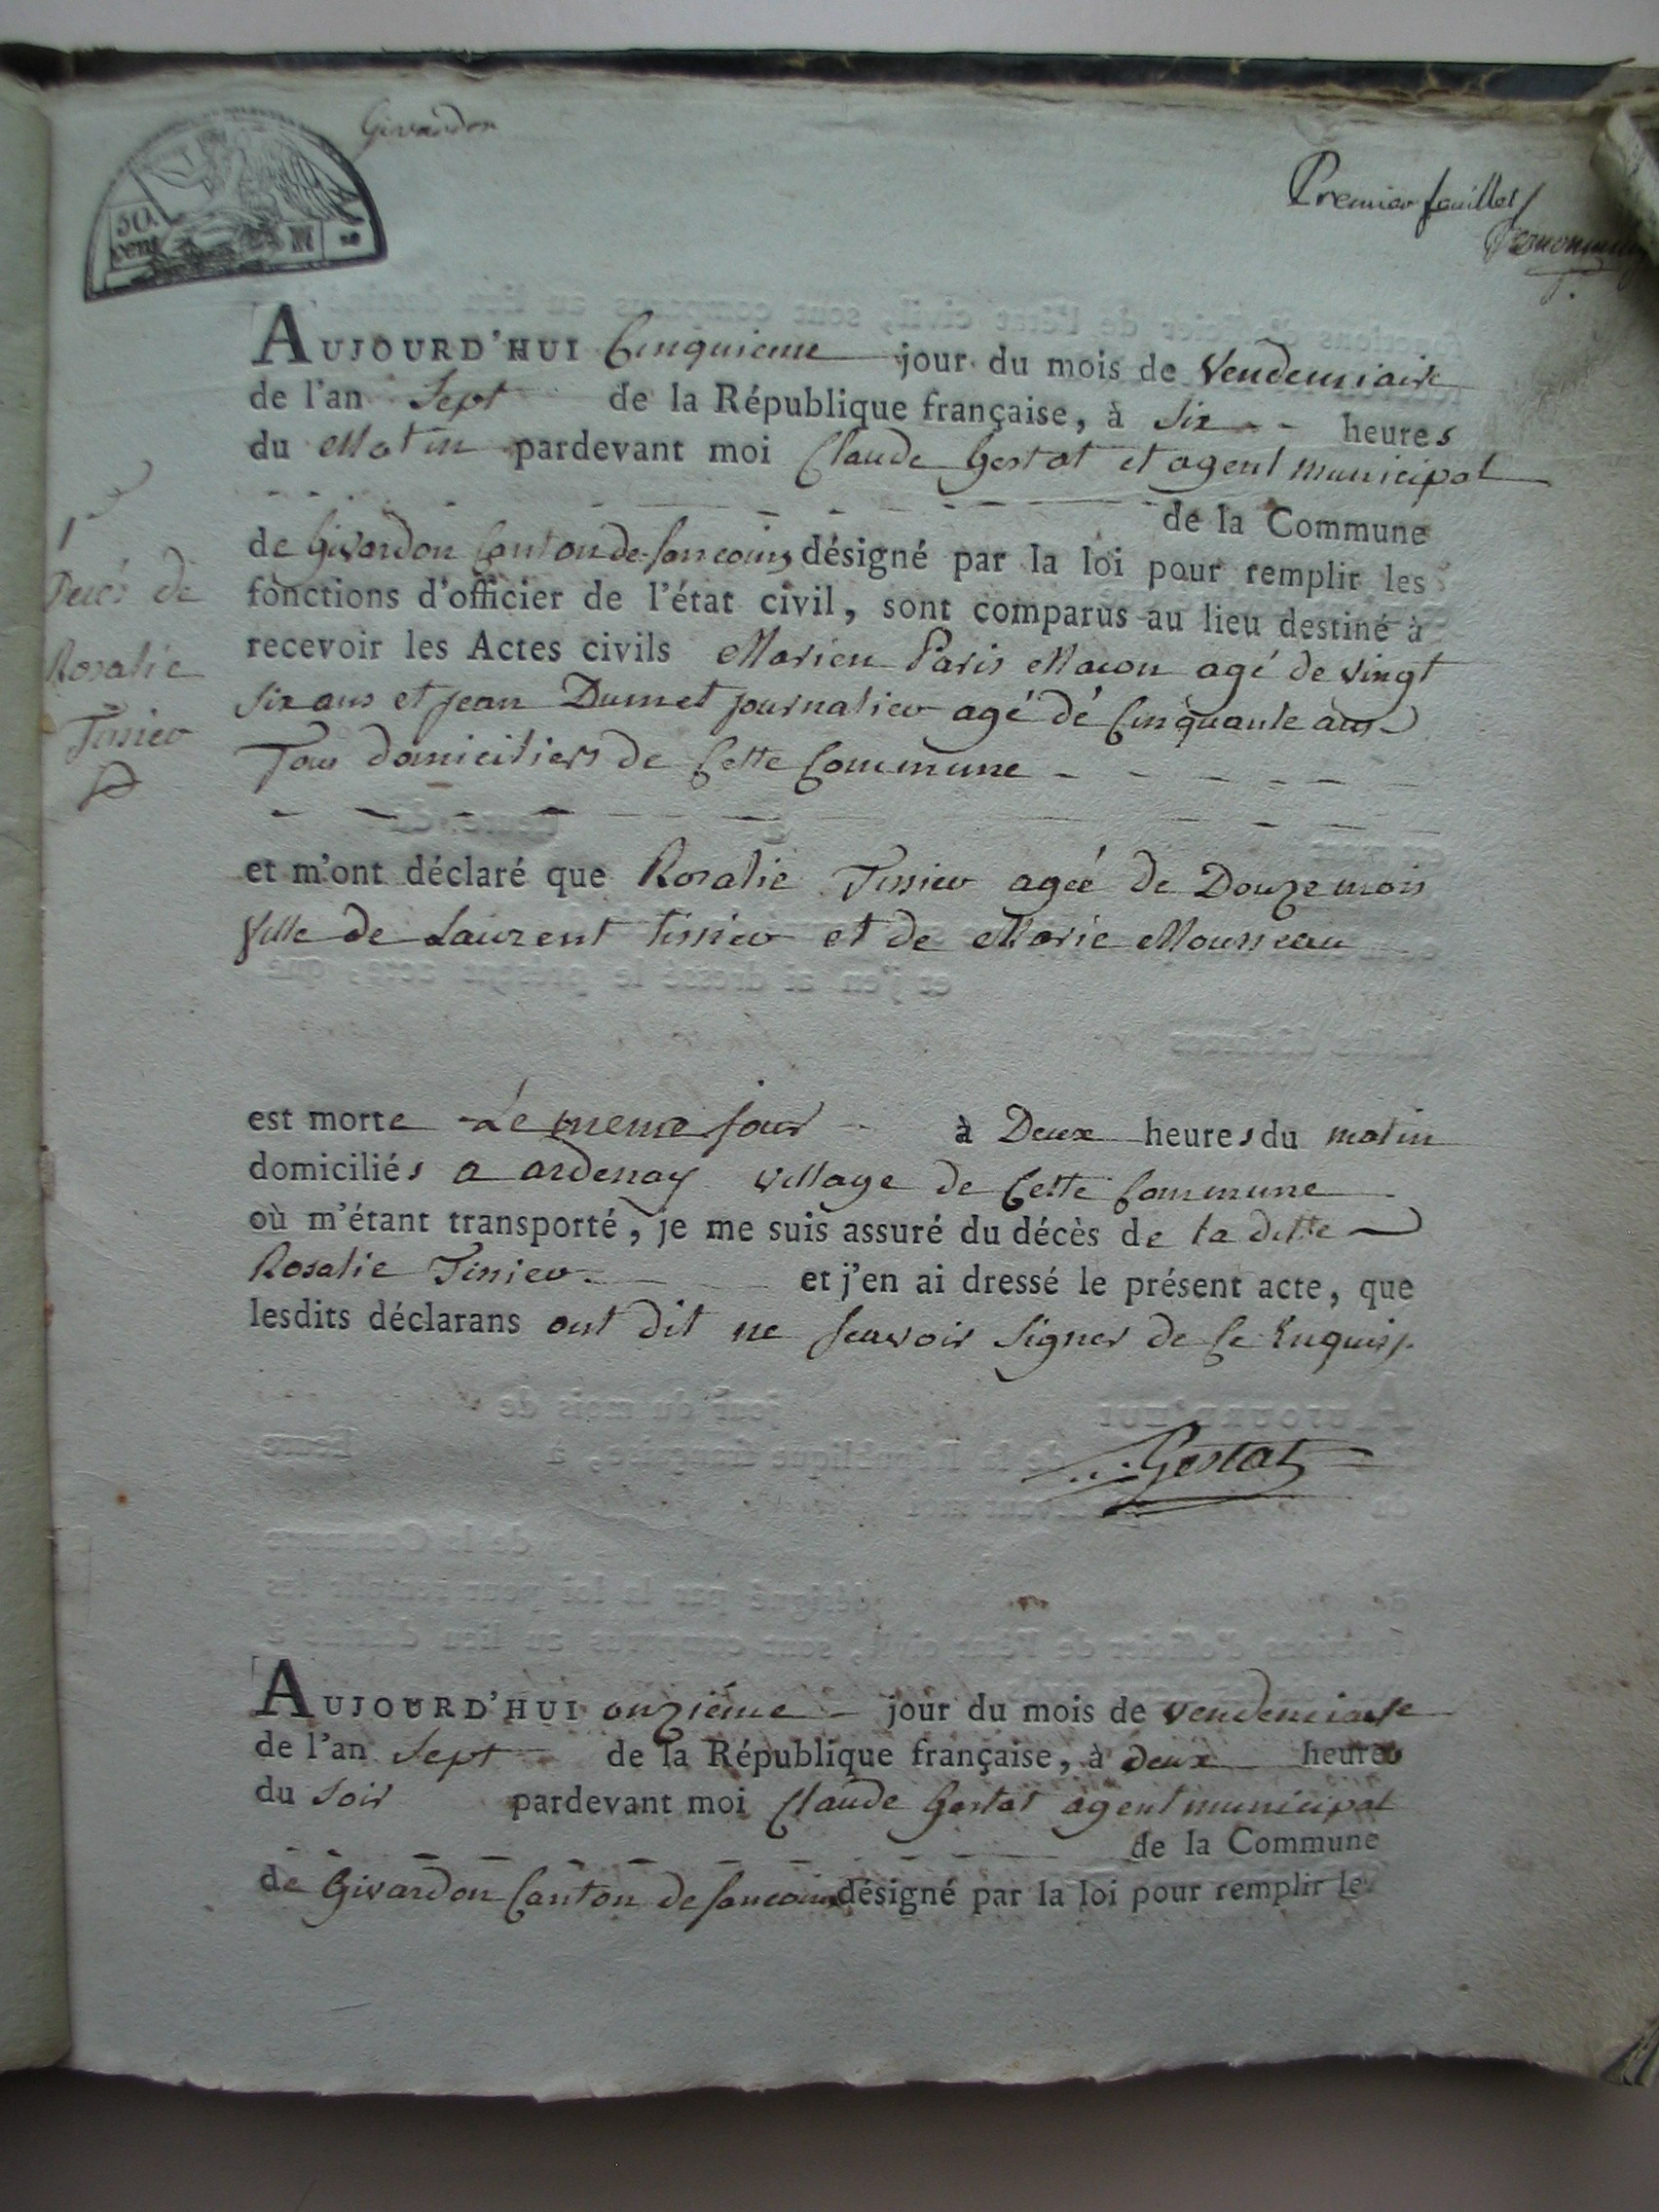 Givardon
50.
cent
Premier feuillet
AUJOURD'HUI Cinquieme jour du mois de Vendemiaire
de l'an Sept de la République française, à Six heures
du Matin pardevant moi Claude Gestat et agent municipal
de la Commune
de Givardon Canton de Sancoins désigné par la loi pour remplir les
fonctions d'officier de l'état civil, sont comparus au lieu destiné à
recevoir les Actes civils Marien Paris Macon agé de vingt
six ans et jean Dumet journalier agé dé Cinquante ans
Tous domiciliers de Cette Commune
1
Decés de
Rosalie
Tissier
et m'ont déclaré que Rosalie Tissier ageé de Douze mois
fille de Laurent tissier et de Marie Mousseau
est morte Le meme jour à Deux heures du matin
domiciliés a ardenay village de Cette Commune
où m'étant transporté, je me suis assuré du décès de la ditte
Rosalie Tissier et j'en ai dressé le présent acte, que
lesdits déclarans ont dit ne scavoir signer de ce Enquis
Gestat
AUJOURD'HUI onziéme jour du mois de vendemiaire
de l'an Sept de la République française, à deux heures
du Soir pardevant moi Claude Gestat agent municipal
de la Commune
de Givardon Canton de Sancoins désigné par la loi pour remplir les